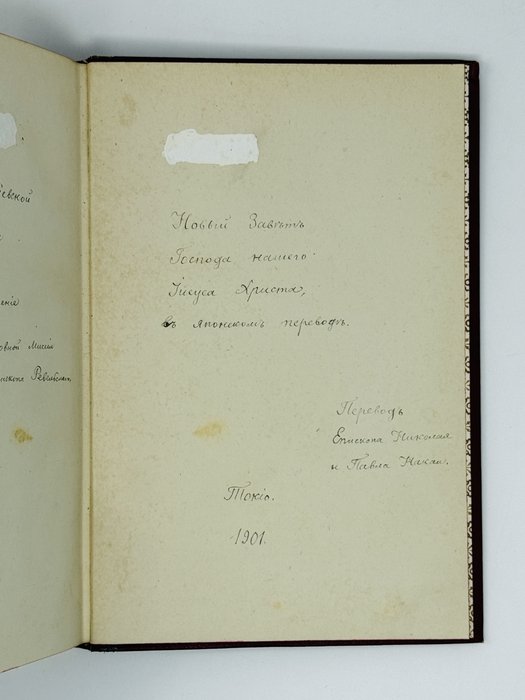 евской
ение
овной Миссіи
ископа Ревельскаго
Новый Завѣтъ
Господа нашего
Іисуса Христа,
въ японскомъ переводѣ.
Переводъ
Епископа Николая
и Павла Накаи.
Токіо.
1901.